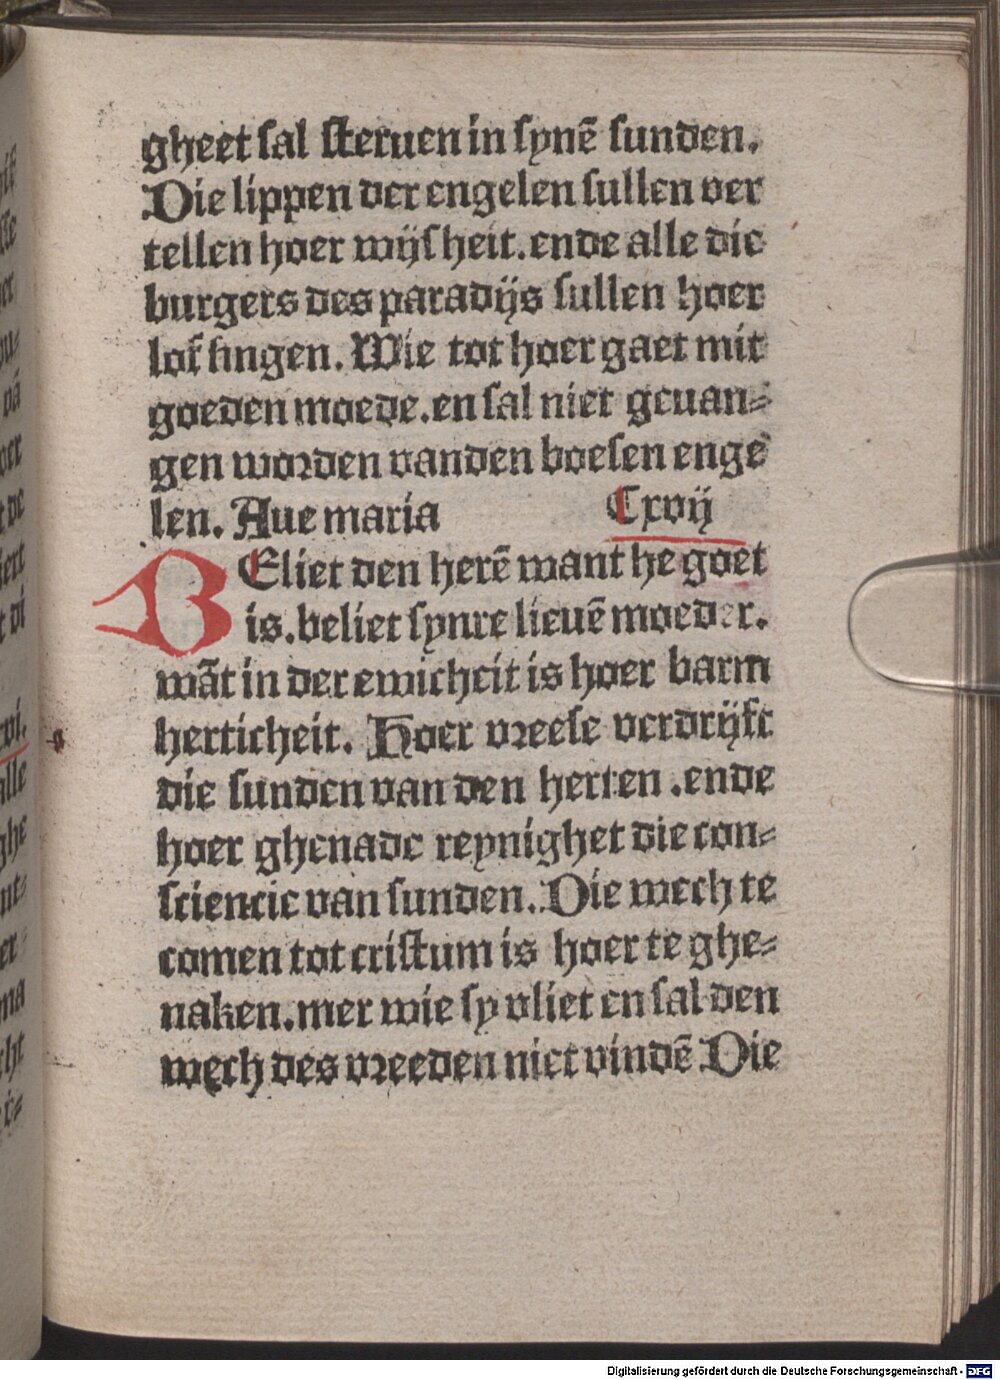 gheet sal steruen in synē sunden.
Die lippen der engelen sullen ver
tellen hoer wijsheit. ende alle die
burgers des paradijs sullen hoer
lof singen. Wie tot hoer gaet mit
goeden moede. en sal niet geuan⸗
gen worden vanden boesen enge
len. Aue maria Cxvij
BEliet den herē want he goet
is. beliet synre lieuē moeder.
wāt in der ewicheit is hoer barm
herticheit. Hoer vreese verdrijft
die sunden van den herten . ende
hoer ghenade reynighet die con⸗
sciencie van sunden. Die wech te
comen tot cristum is hoer te ghe⸗
naken. mer wie sy vliet en sal den
wech des vreeden niet vindē Die
Digitalisierung gefördert durch die Deutsche Forschungsgemeinschaft - DFG